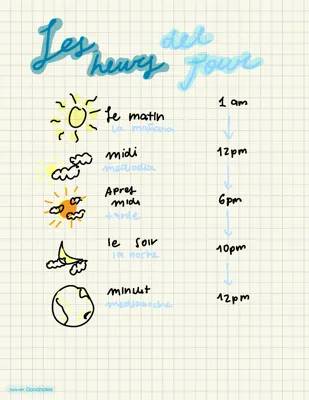 Les heurs del Jour
le matin 1 am
la mañana
midi 12pm
mediodia
Apres midi 6pm
tarde
le soir 10pm
la noche
minuit 12pm
medianoche
Goodnotes